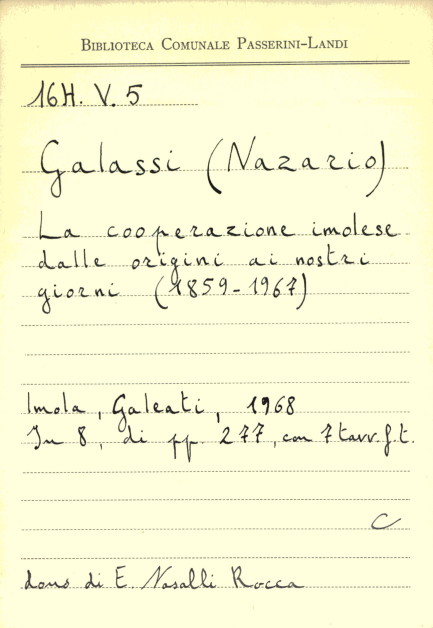 BIBLIOTECA COMUNALE PASSERINI-LANDI
16H. V. 5
Galassi (Nazario)
La cooperazione imolese
dalle origini ai nostri
giorni (1859-1967)
Imola, Galeati, 1968
In 8, di pp. 277, con 7 tavv. f. t.
C
dono di E. Nasalli Rocca